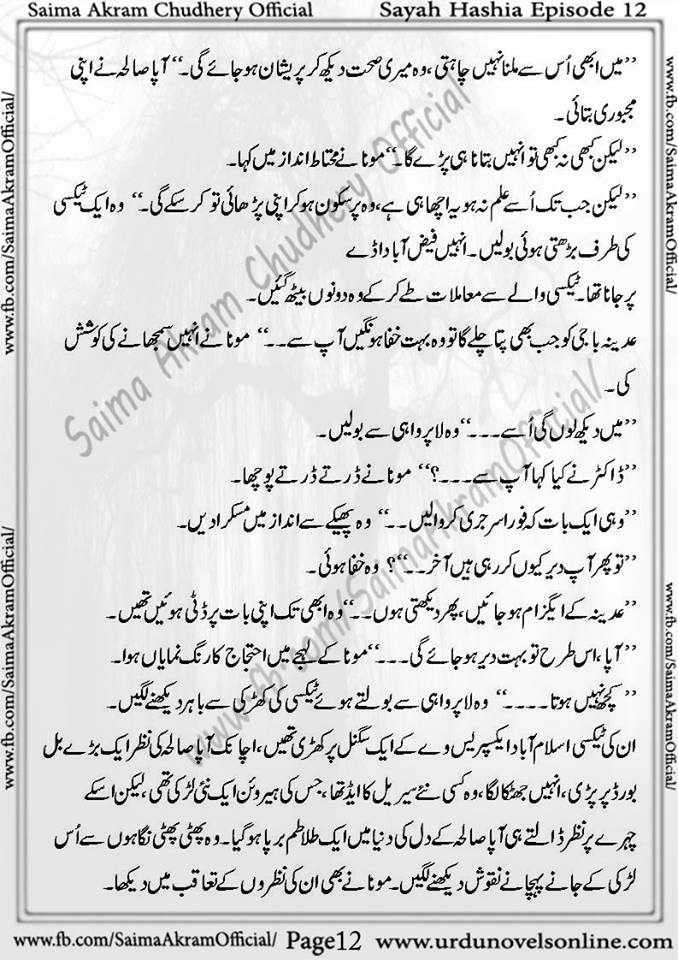 Saima Akram Chudhery Official Sayah Hashia Episode 12
’’میں ابھی اُس سے ملنا نہیں چاہتی ،وہ میری صحت دیکھ کر پریشان ہو جائے گی۔‘‘ آپا صالحہ نے اپنی
مجبوری بتائی۔
’’لیکن کبھی نہ کبھی تو انہیں بتانا ہی پڑے گا۔‘‘مونا نے محتاط انداز میں کہا۔
’’لیکن جب تک اُسے علم نہ ہو یہ اچھا ہی ہے،وہ پرسکون ہو کر اپنی پڑھائی تو کر سکے گی۔‘‘ وہ ایک ٹیکسی
کی طرف بڑھتی ہوئی بولیں۔انہیں فیض آباد اڈے
پر جانا تھا۔ٹیکسی والے سے معاملات طے کر کے وہ دونوں بیٹھ گئیں۔
عدینہ باجی کو جب بھی پتا چلے گا تو وہ بہت خفا ہونگیں آپ سے۔۔‘‘ مونا نے انہیں سمجھانے کی کوشش
کی۔
’’میں دیکھ لوں گی اُسے۔۔۔‘‘وہ لا پرواہی سے بولیں۔
’’ڈاکٹر نے کیا کہا آپ سے۔۔۔؟‘‘ مونا نے ڈرتے ڈرتے پوچھا۔
’’وہی ایک بات کہ فوراسرجری کروالیں۔۔‘‘ وہ پھیکے سے انداز میں مسکرا دیں۔
’’تو پھر آپ دیر کیوں کر رہی ہیں آخر۔۔‘‘؟ وہ خفا ہوئی۔
’’عدینہ کے ایگزام ہو جائیں،پھر دیکھتی ہوں۔۔‘‘وہ ابھی تک اپنی بات پر ڈٹی ہوئیں تھیں۔
’’آپا،اس طرح تو بہت دیر ہو جائے گی۔۔۔‘‘مونا کے لہجے میں احتجاج کا رنگ نمایاں ہوا۔
’’کچھ نہیں ہوتا۔۔۔۔‘‘ وہ لا پرواہی سے بولتے ہوئے ٹیکسی کی کھڑکی سے باہر دیکھنے لگیں۔
ان کی ٹیکسی اسلام آباد ایکسپریس وے کے ایک سگنل پر کھڑی تھیں،اچانک آپا صالحہ کی نظر ایک بڑے بل
بورڈ پر پڑی،انہیں جھٹکا لگا،وہ کسی نئے سیریل کا ایڈ تھا،جس کی ہیروئن ایک نئی لڑکی تھی،لیکن اسکے
چہرے پر نظر ڈالتے ہی آپا صالحہ کے دل کی دنیا میں ایک طلاطم برپا ہو گیا۔وہ پھٹی پھٹی نگاہوں سے اُس
لڑکی کے جانے پہچانے نقوش دیکھنے لگیں۔مونا نے بھی ان کی نظروں کے تعاقب میں دیکھا۔
www.fb.com/SaimaAkramOfficial/
www.fb.com/SaimaAkramOfficial/
www.fb.com/SaimaAkramOfficial/
www.fb.com/SaimaAkramOfficial/
Saima Akram Chudhery Official
www.fb.com/SaimaAkramOfficial/
www.fb.com/SaimaAkramOfficial/ Page12 www.urdunovelsonline.com